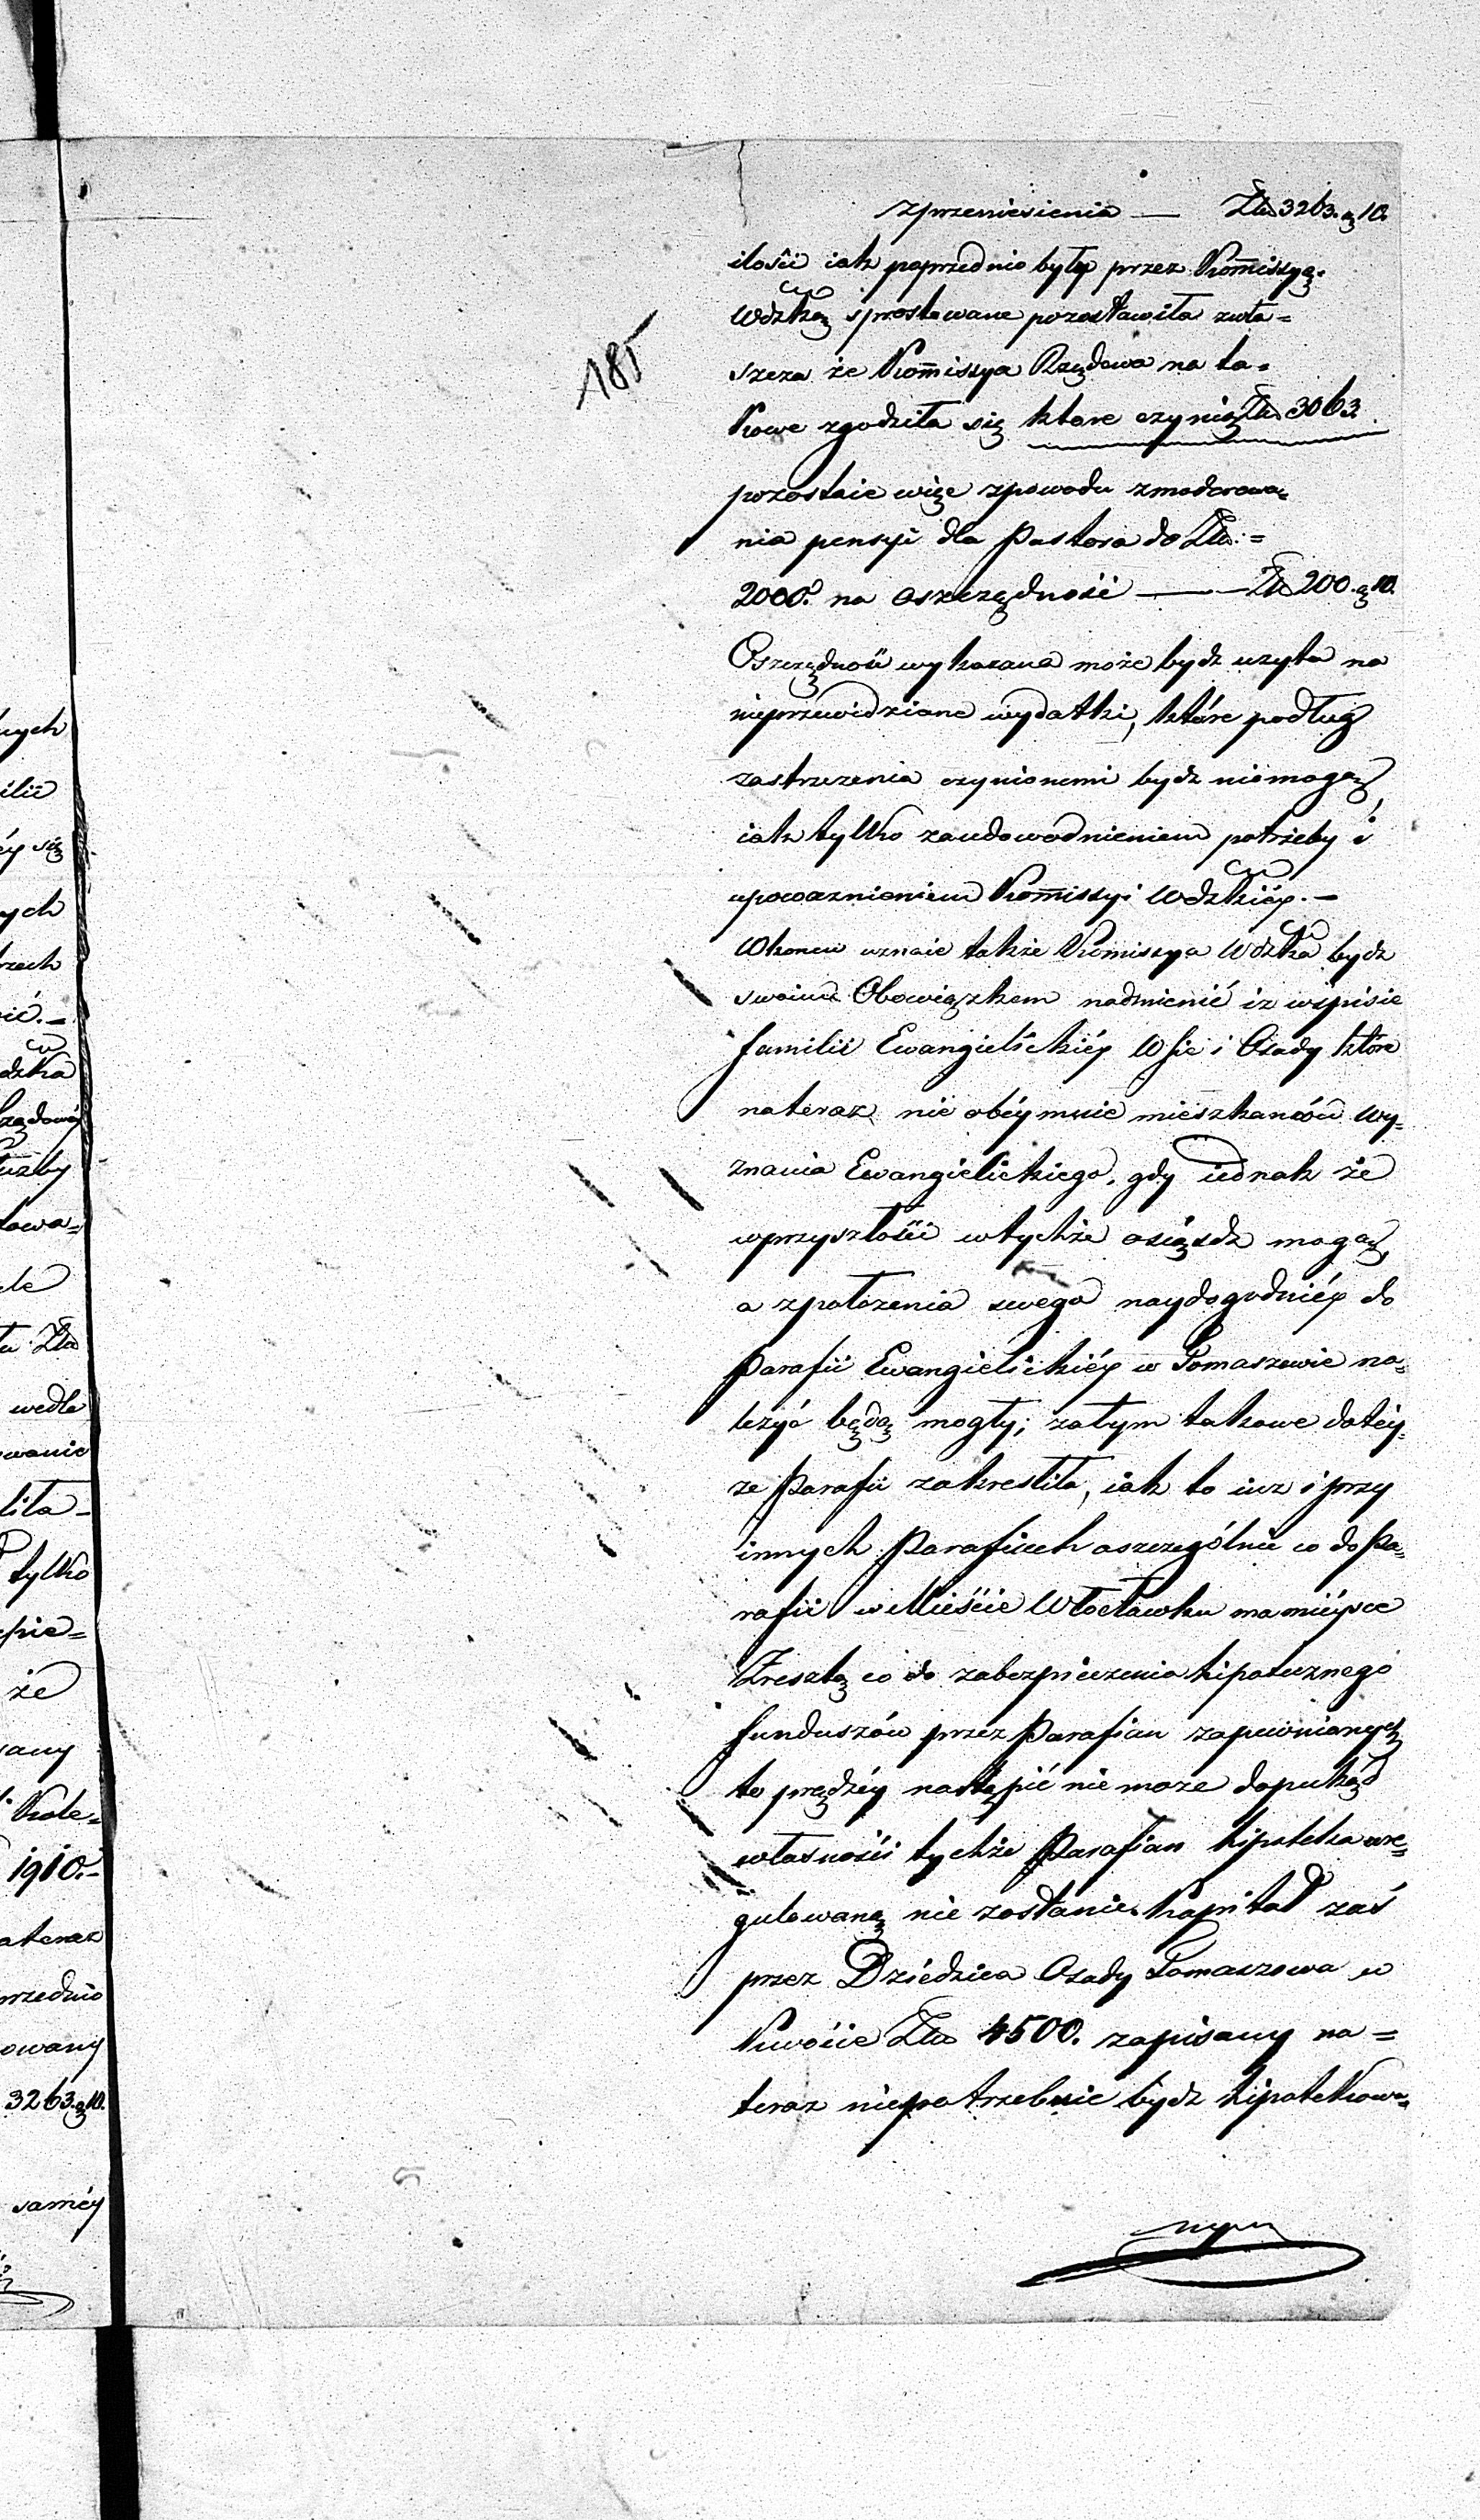 185
zprzeniesienia — Złł 3263. g 10.
ilości iak poprzednio były przez Kommissyą
Wdzką sprostowane pozostawiła zwła=
szcza że Kommissya Rządowa na ta=
kowe zgodziła się które czynią Złł 3063.
pozostaie więc zpowodu zmoderowa=
nia pensyi dla Pastora do Złł. =
2000. na oszczędność — Złł 200. g 10.
Oszczędność wykazana może bydz uzyta na
nieprzewidziane wydatki, które podług
zastrzezenia czynionemi bydz niemogą,
iak tylko zaudowodnieniem potrzeby i
upowaznieniem Kommissyi Wdzkiéy. —
Wkoncu uznaie także Komissya Wdzka bydz
swoim Obowiązkem nadmienić iz wspisie
familii Ewangielickiéy Wsie i Osady które
nateraz nie obéymuie mieszkanców wy=
znania Ewangielickiego, gdy iednak że
wprzyszłości wtychże osiąsdz mogą,
a zpołozenia swego naydogodniéy do
Parafii Ewangielickiéy w Tomaszowie na=
lezyć będą mogły; zatym takowe dotéy=
ze Parafii zakreśliła, iak to iuz i przy
innych Parafiiach aszczególnie co do Pa=
rafii w Mieście Włocławku ma miéysce
Zresztą co do zabezpieczenia hipotecznego
funduszów przez Parafian zapewnionych
to prędzéy nastąpić nie moze dopukąd
własności tychże Parafian hipoteka ure=
gulowaną nie zostanie. Kapitał zaś
przez Dziedzica Osady Tomaszowa w
Kwocie Złł 4500. zapisany na=
teraz niepotrzebuie bydz hipotekowa=
ych
ilii
éy się
ych
rzech
ić. —
dzka
Rządowéy
uzby
towa=
le
Złł
wedle
owanie
liła —
tylko
pie=
że
any
Kole=
1910. —
ateraz
przednio
owany
3263. g 10.
saméy